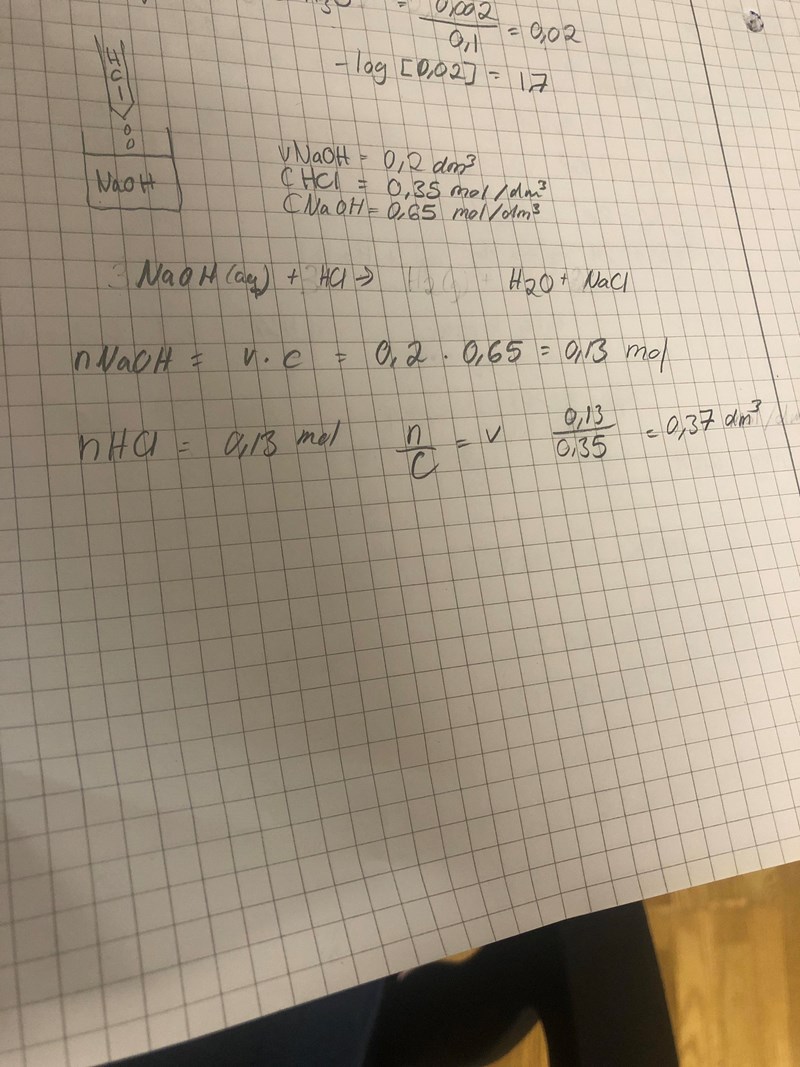 = 0,002 / 0,1 = 0,02
-log [0,02] = 17
HCl
NaOH
vNaOH = 0,2 dm³
CHCl = 0,35 mol/dm³
CNaOH = 0,65 mol/dm³
NaOH (aq) + HCl → H2O + NaCl
nNaOH = v · c = 0,2 · 0,65 = 0,13 mol
nHCl = 0,13 mol n/C = v 0,13/0,35 = 0,37 dm³